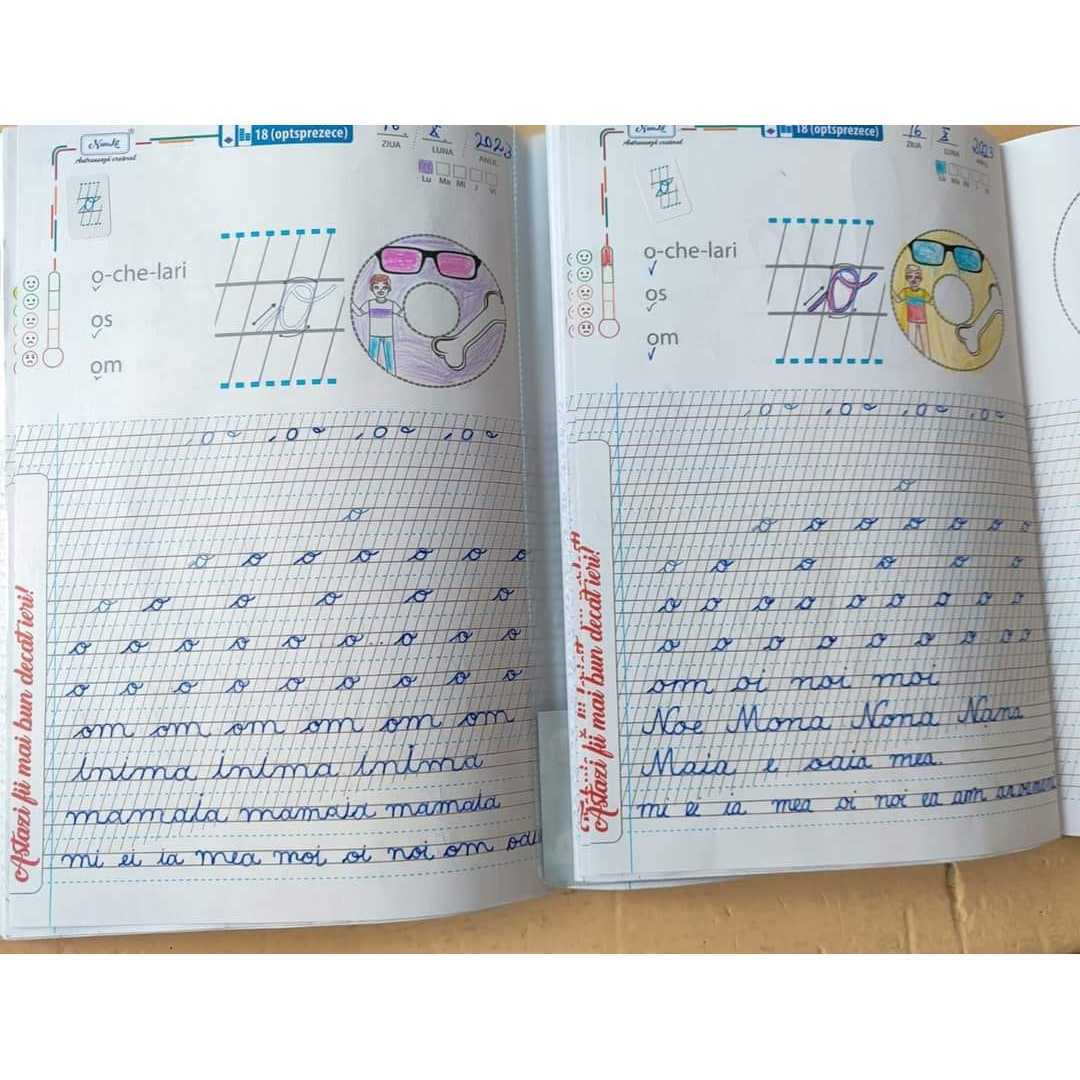 Nomki
Antrenează creierul
18 (optsprezece)
16 X 2023
ZIUA LUNA ANUL
Lu Ma Mi J Vi
o
o-che-lari
os
om
Astazi fii mai bun decât ieri!
, o ~ , o ~ , o ~ , o ~
o
o o o o o o o
o o o o o o
o o o o o o o o o
o o o o o o o o o
om om om om om om
inima inima inima
mamaia mamaia mamaia
mi ei ia mea moi oi noi om
18 (optsprezece)
Antrenează creierul
16 X 2023
ZIUA LUNA
Lu Ma Mi J Vi
o
o-che-lari
os
om
Astazi fii mai bun decât ieri!
, o ~ , o ~ , o ~ , o ~
o
o o o o o o o
o o o o o o
o o o o o o o o o
o o o o o o o o o
om oi noi moi
Noe Mona Nona Nana
Maia e oaia mea.
mi ei ia mea oi noi ea am